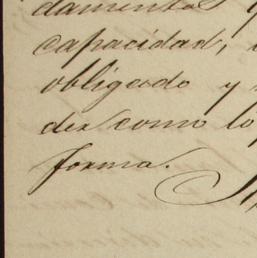 damente
capacidad,
obligado y
der como lo
forma.